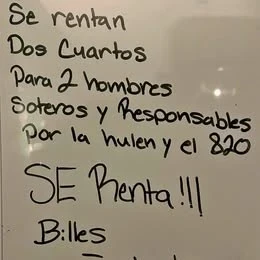 Se rentan
Dos Cuartos
Para 2 hombres
Soteros y Responsables
Por la hulen y el 820
SE Renta!!!
Billes